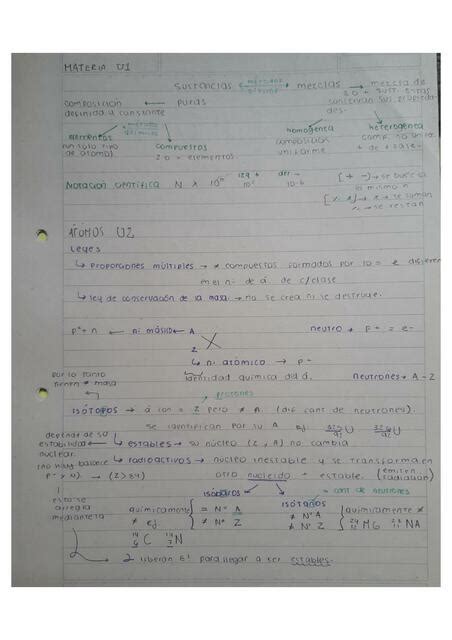 MATERIA U1
sustancias ← métodos físicos → mezclas → mezcla de 2 o + sust. estas
composición ← puras conservan sus propieda-
definida y constante des.
elementos métodos químicos compuestos homogénea heterogénea
un solo tipo de átomo) 2 o + elementos composición uniforme comp. no unif. + de 1 fase
Notación científica N x 10ⁿ izq + 10² der - 10-6 [+ -) → se busca el mismo n
→ se suman
→ se restan
ÁTOMOS U2
Leyes
↳ proporciones múltiples → ≠ compuestos formados por = e difieren
en el nº de á. de c/clase
↳ ley de conservación de la masa → no se crea ni se destruye.
p⁺ + n ← nº másico ← A X neutro → p+ = e-
Z
↳ nº atómico → p+
por lo tanto identidad química del á. neutrones → A - Z
tienen ≠ masa
protones
ISÓTOPOS → á con = Z pero ≠ A. (dif cant de neutrones)
se identifican por su A ej: 235 92 U 236 92 U
depende de su
estabilidad ← ↳ estables → su núcleo (Z, A) no cambia
nuclear. ↳ radioactivos → núcleo inestable y se transforma en
(no hay balance
p+ y n) → (Z > 84) otro nucleido + estable. (emiten radiación)
ISÓBAROS ISÓTONOS = cant de neutrones
esto se
arregla químicamente ≠ ej { = Nº A ≠ Nº Z ≠ Nº A ≠ Nº Z } químicamente ≠
mediante
14 6 C 14 7 N 24 12 MG 23 11 NA
liberan E¹ para llegar a ser estables.